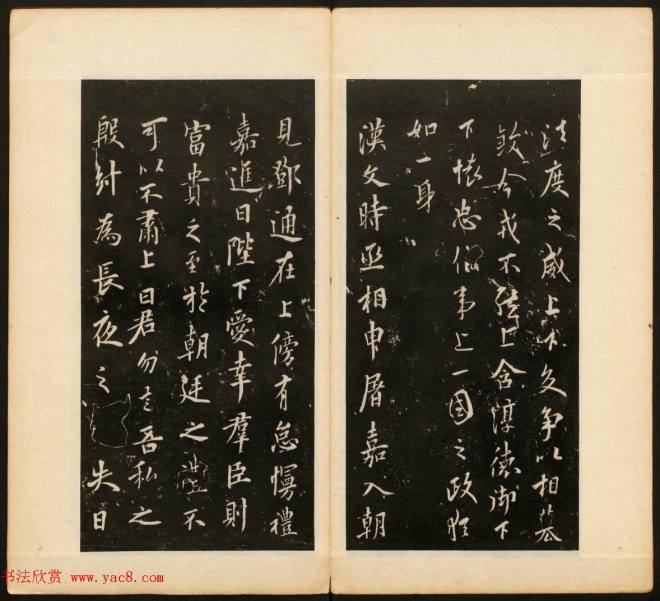 法度之威上下交爭以相篡
弒今戎不然上含淳德御下
下懷忠信事上一國之政猶
如一身
漢文時丞相申屠嘉入朝
見鄧通在上傍有怠慢禮
嘉進曰陛下愛幸羣臣則
富貴之至於朝廷之禮不
可以不肅上曰君勿言吾私之
殷紂為長夜之失日
书法欣赏 www.yac8.com